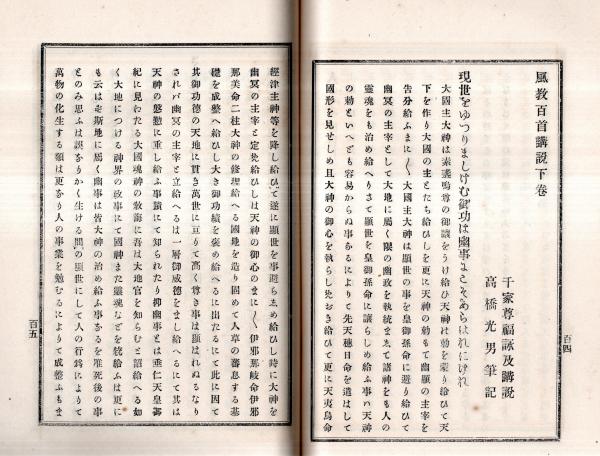 風教百首講説下卷
千家尊福詠及講説
高橋光男筆記
現世をゆつりましけむ御功は幽事にこそあらはれにけれ
大國主大神は素盞嗚尊の御讓をうけ給ひ天神の勅を蒙り給ひて天
下を作り大國の主とたち給ひしを更に天神の勅もて幽顯の主宰を
告分給ふまに〱大國主大神は顯世の事を皇御孫命に避り給ひて
幽冥の主宰として大地に屬く限の幽政を執統ゐて諸神をも人の
靈魂をも治め給へりさて顯世を皇御孫命に讓らしめ給ふ事ハ天神
の勅といへども容易からぬ事なるによりて先天穗日命を遣はして
國形を見せしめ且大神の御心を執らしめおき給ひて更に天夷鳥命
百四
經津主神等を降し給ひて遂に顯世を事避らゐめ給ひし時に大神を
幽冥の主宰と定め給ひしは天神の御心のまに〱伊邪那岐命伊邪
那美命二柱大神の修理給へる國地を造り固めて人草の蕃息する基
礎を成整へ給ひし大き御功績を褒め給へるに出たるにて此に因て
其御功德の天地に貫き萬世に亘りて高く尊き事は顯はれぬるなり
されバ幽冥の主宰と立給へるは一層御威德をまし給へるにて其は
天神の慇懃に重し給ふ事蹟にて知られたり抑幽事とは垂仁天皇御
紀に見わたる大國魂神の敎誨に吾は大地官を知らむと詔給へる如
く大地につける神界の政事にて國神また靈魂などを統給ふは更に
も云はゐ斯地に屬く幽事は皆大神の治め給ふ事なるを唯死後の事
とのみ思ふは誤なりかく生ける間の顯世にして人の行爲によりて
萬物の化生する類は更なり人の事業を勉むるによりて成整ふもま
百五